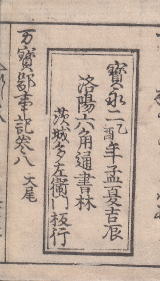 寳永二乙酉年孟夏吉辰
洛陽六角通書林
茨城多左衞門板行
万寳鄙事記卷八大尾